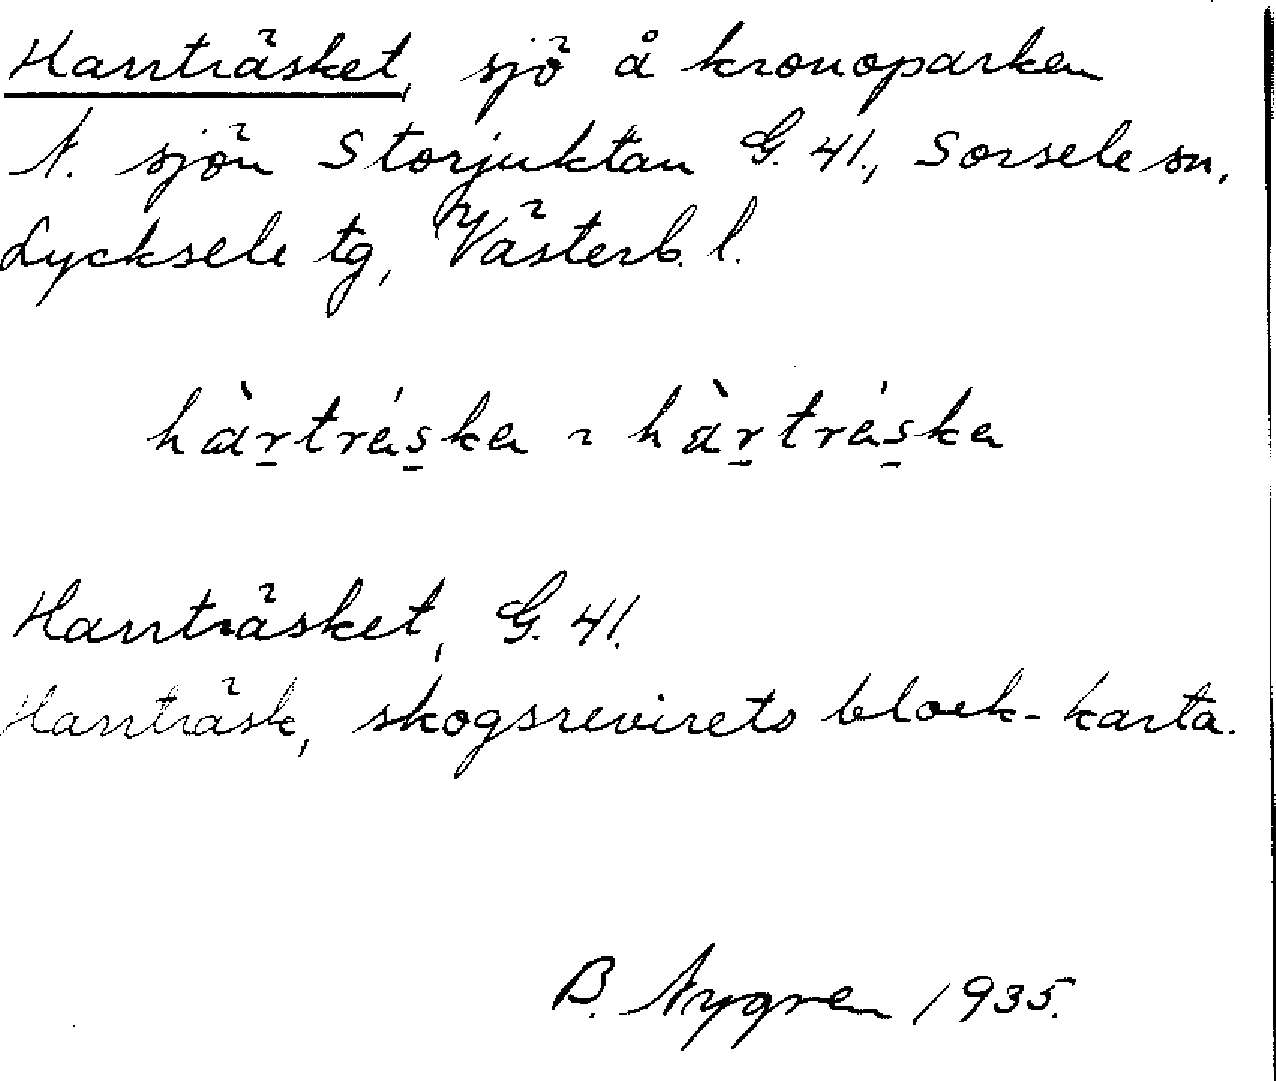 Harrträsket, sjö å kronoparken
N. sjön Storjuktan G. 41., Sorsele sn,
Lycksele tg, Västerb. l.
hàr̠trás̠ka ~ hàr̠trás̠ka
Harrträsket, G. 41.
Harrträsk, skogsrevirets block-karta.
B. Nygren 1935.